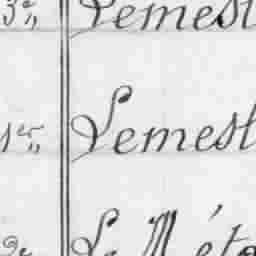 3e,, Lemest
1er,, Lemest
2e Le Méto